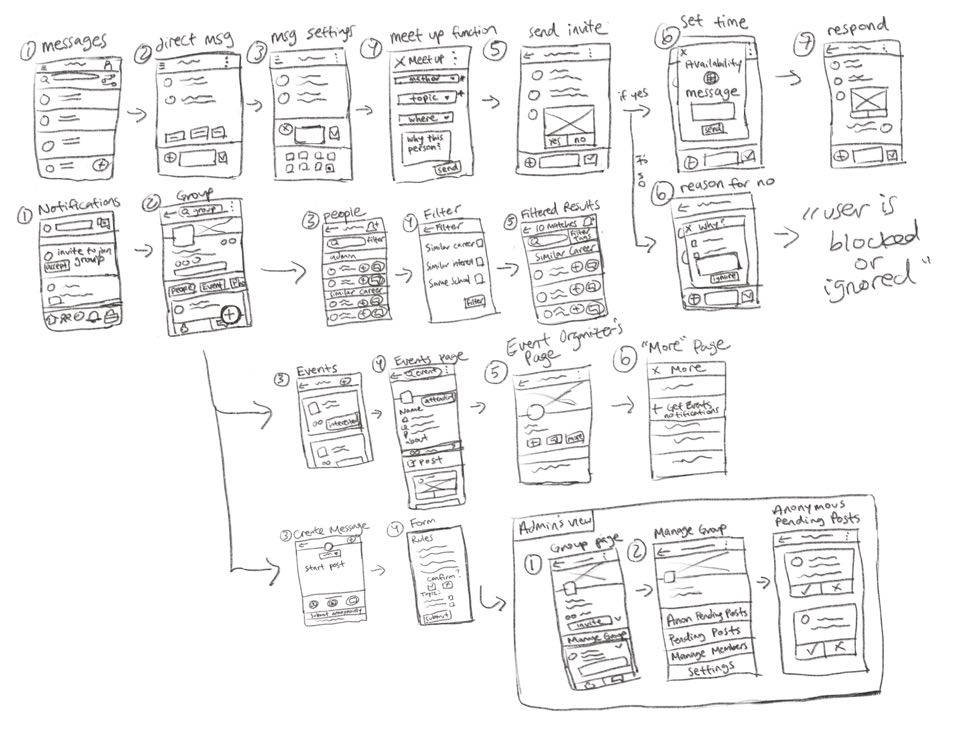 ① messages
② direct msg
③ msg settings
④ meet up function
⑤ send invite
⑥ set time
⑦ respond
X Meet up
method
topic
where
why this
person?
send
yes no
if yes
if so
X
Availability
message
send
⑥ reason for no
X why
ignore
"user is
blocked
or
ignored"
① Notifications
invite to join
group
accept
② Group
Q group
People Event
③ people
filter
admin
Similar Career
④ Filter
← Filter
Similar career
Similar interest
Same school
Filter
⑤ Filtered Results
← 10 Matches
Filter
Tags
Similar Career
③ Events
interested
④ Events page
event
Name
about
post
⑤ Event Organizer's
Page
more
⑥ "More" Page
X More
+ Get Events
notifications
③ Create Message
start post
④ Form
Rules
confirm?
Topic
submit
Admin's view
① Group page
invite
Manage Group
② Manage Group
Anon Pending Posts
Pending Posts
Manage Members
settings
Anonymous
Pending Posts